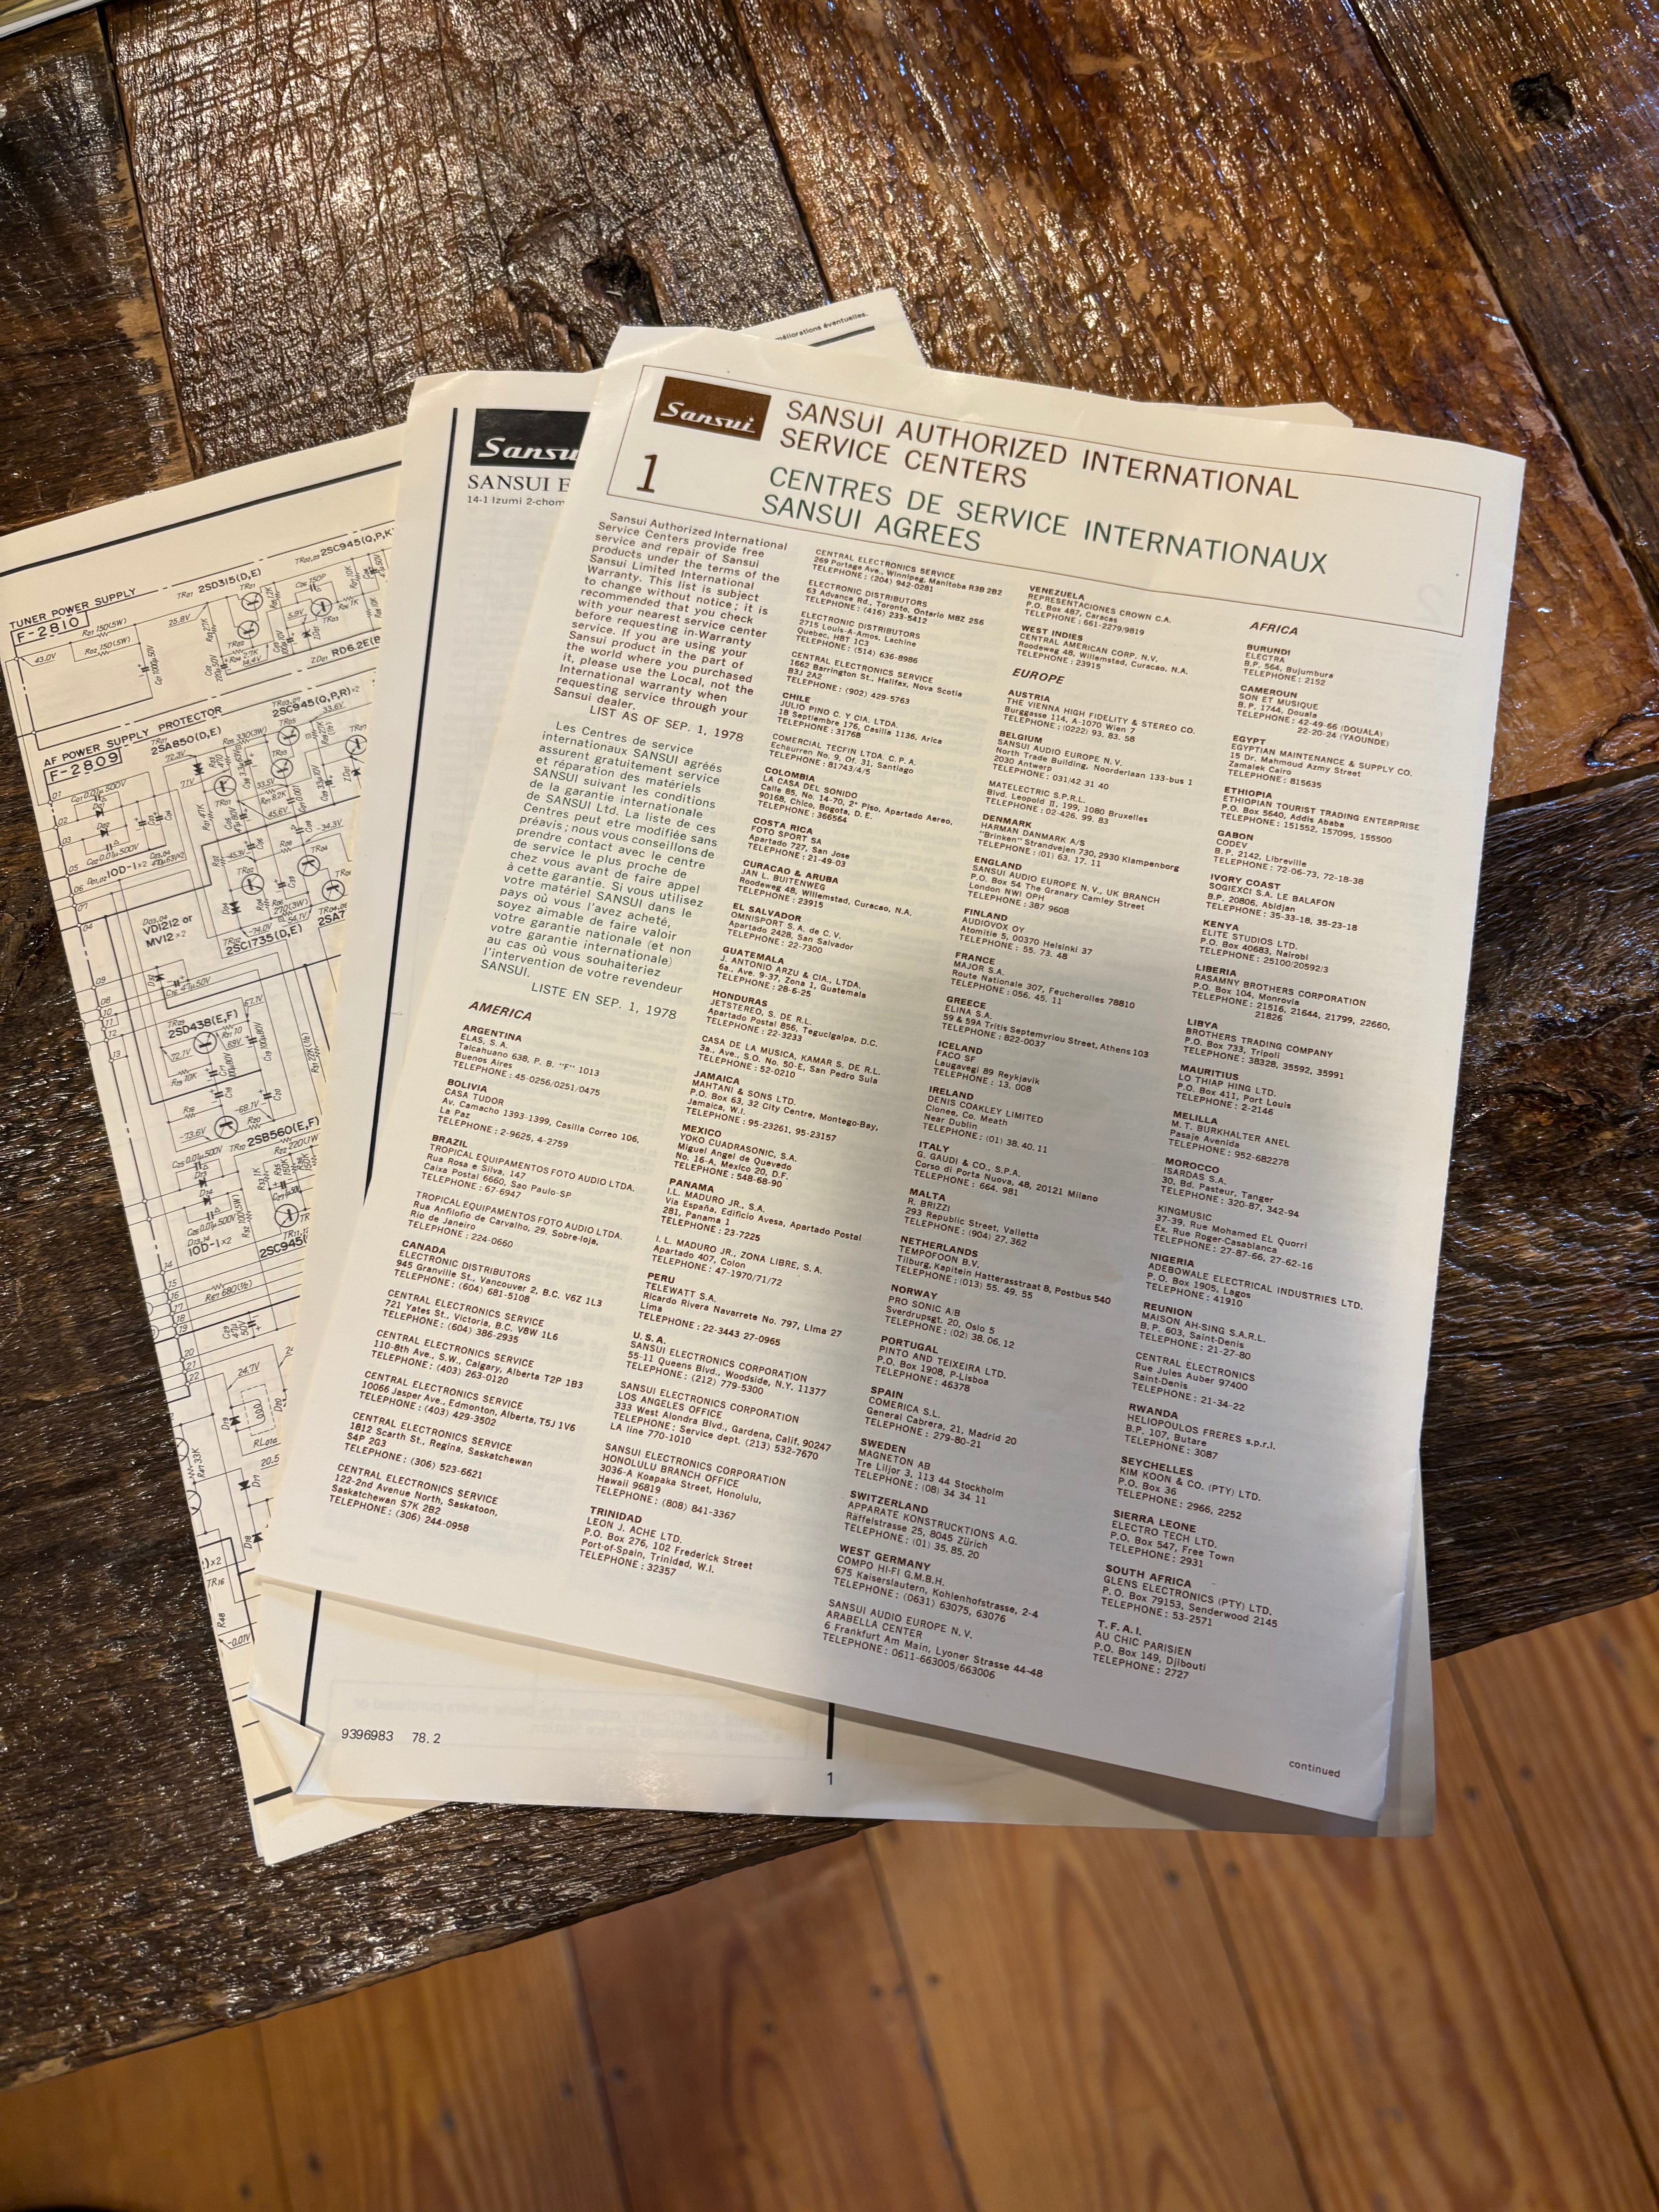 méliorations éventuelles.
Sansui
SANSUI AUTHORIZED INTERNATIONAL
SERVICE CENTERS
1
CENTRES DE SERVICE INTERNATIONAUX
SANSUI AGREES
Sansui Authorized International
Service Centers provide free
service and repair of Sansui
products under the terms of the
Sansui Limited International
Warranty. This list is subject
to change without notice; it is
recommended that you check
with your nearest service center
before requesting in-Warranty
service. If you are using your
Sansui product in the part of
the world where you purchased
it, please use the Local, not the
International warranty when
requesting service through your
Sansui dealer.
LIST AS OF SEP. 1, 1978
Les Centres de service
internationaux SANSUI agréés
assurent gratuitement service
et réparation des matériels
SANSUI suivant les conditions
de la garantie internationale
de SANSUI Ltd. La liste de ces
Centres peut etre modifiée sans
préavis; nous vous conseillons de
prendre contact avec le centre
de service le plus proche de
chez vous avant de faire appel
à cette garantie. Si vous utilisez
votre matériel SANSUI dans le
pays où vous l'avez acheté,
soyez aimable de faire valoir
votre garantie nationale (et non
votre garantie internationale)
au cas où vous souhaiteriez
l'intervention de votre revendeur
SANSUI.
LISTE EN SEP. 1, 1978
AMERICA
ARGENTINA
ELAS, S.A.
Talcahuano 638, P. B. "F" 1013
Buenos Aires
TELEPHONE: 45-0256/0251/0475
BOLIVIA
CASA TUDOR
Av. Camacho 1393-1399, Casilla Correo 106,
La Paz
TELEPHONE: 2-9625, 4-2759
BRAZIL
TROPICAL EQUIPAMENTOS FOTO AUDIO LTDA.
Rua Rosa e Silva, 147
Caixa Postal 6660, Sao Paulo-SP
TELEPHONE: 67-6947
TROPICAL EQUIPAMENTOS FOTO AUDIO LTDA.
Rua Anfilofio de Carvalho, 29, Sobre-loja,
Rio de Janeiro
TELEPHONE: 224-0660
CANADA
ELECTRONIC DISTRIBUTORS
945 Granville St., Vancouver 2, B.C. V6Z 1L3
TELEPHONE: (604) 681-5108
CENTRAL ELECTRONICS SERVICE
721 Yates St., Victoria, B.C. V8W 1L6
TELEPHONE: (604) 386-2935
CENTRAL ELECTRONICS SERVICE
110-8th Ave., S.W., Calgary, Alberta T2P 1B3
TELEPHONE: (403) 263-0120
CENTRAL ELECTRONICS SERVICE
10066 Jasper Ave., Edmonton, Alberta, T5J 1V6
TELEPHONE: (403) 429-3502
CENTRAL ELECTRONICS SERVICE
1812 Scarth St., Regina, Saskatchewan
S4P 2G3
TELEPHONE: (306) 523-6621
CENTRAL ELECTRONICS SERVICE
122-2nd Avenue North, Saskatoon,
Saskatchewan S7K 2B2
TELEPHONE: (306) 244-0958
CENTRAL ELECTRONICS SERVICE
269 Portage Ave., Winnipeg, Manitoba R3B 2B2
TELEPHONE: (204) 942-0281
ELECTRONIC DISTRIBUTORS
63 Advance Rd., Toronto, Ontario M8Z 2S6
TELEPHONE: (416) 233-5412
ELECTRONIC DISTRIBUTORS
2715 Louis-A-Amos, Lachine
Quebec, H8T 1C3
TELEPHONE: (514) 636-8986
CENTRAL ELECTRONICS SERVICE
1662 Barrington St., Halifax, Nova Scotia
B3J 2A2
TELEPHONE: (902) 429-5763
CHILE
JULIO PINO C. Y CIA. LTDA.
18 Septiembre 176, Casilla 1136, Arica
TELEPHONE: 31768
COMERCIAL TECFIN LTDA. C. P. A.
Echaurren No. 9, Of. 31, Santiago
TELEPHONE: 81743/4/5
COLOMBIA
LA CASA DEL SONIDO
Calle 85, No. 14-70, 2° Piso, Apartado Aereo,
90168, Chico, Bogota, D. E.
TELEPHONE: 366564
COSTA RICA
FOTO SPORT SA
Apartado 727, San Jose
TELEPHONE: 21-49-03
CURACAO & ARUBA
JAN L. BUITENWEG
Roodeweg 48, Willemstad, Curacao, N.A.
TELEPHONE: 23915
EL SALVADOR
OMNISPORT S.A. de C. V.
Apartado 2428, San Salvador
TELEPHONE: 22-7300
GUATEMALA
J. ANTONIO ARZU & CIA., LTDA.
6a., Ave. 9-37, Zona 1, Guatemala
TELEPHONE: 28-6-25
HONDURAS
JETSTEREO, S. DE R.L.
Apartado Postal 856, Tegucigalpa, D.C.
TELEPHONE: 22-3233
CASA DE LA MUSICA, KAMAR S. DE R.L.
3a. Ave., S.O. No. 50-E, San Pedro Sula
TELEPHONE: 52-0210
JAMAICA
MAHTANI & SONS LTD.
P.O. Box 63, 32 City Centre, Montego-Bay,
Jamaica, W.I.
TELEPHONE: 95-23261, 95-23157
MEXICO
YOKO CUADRASONIC, S.A.
Miguel Angel de Quevedo
No. 16-A, Mexico 20, D.F.
TELEPHONE: 548-68-90
PANAMA
I.L. MADURO JR., S.A.
Via España, Edificio Avesa, Apartado Postal
281, Panama 1
TELEPHONE: 23-7225
I. L. MADURO JR., ZONA LIBRE, S. A.
Apartado 407, Colon
TELEPHONE: 47-1970/71/72
PERU
TELEWATT S.A.
Ricardo Rivera Navarrete No. 797, Lima 27
Lima
TELEPHONE: 22-3443 27-0965
U. S. A.
SANSUI ELECTRONICS CORPORATION
55-11 Queens Blvd., Woodside, N.Y. 11377
TELEPHONE: (212) 779-5300
SANSUI ELECTRONICS CORPORATION
LOS ANGELES OFFICE
333 West Alondra Blvd., Gardena, Calif. 90247
TELEPHONE: Service dept. (213) 532-7670
LA line 770-1010
SANSUI ELECTRONICS CORPORATION
HONOLULU BRANCH OFFICE
3036-A Koapaka Street, Honolulu,
Hawaii 96819
TELEPHONE: (808) 841-3367
TRINIDAD
LEON J. ACHE LTD.
P.O. Box 276, 102 Frederick Street
Port-of-Spain, Trinidad, W.I.
TELEPHONE: 32357
VENEZUELA
REPRESENTACIONES CROWN C.A.
P.O. Box 487, Caracas
TELEPHONE: 661-2279/9819
WEST INDIES
CENTRAL AMERICAN CORP. N.V.
Roodeweg 48, Willemstad, Curacao, N.A.
TELEPHONE: 23915
EUROPE
AUSTRIA
THE VIENNA HIGH FIDELITY & STEREO CO.
Burggasse 114, A-1070 Wien 7
TELEPHONE: (0222) 93. 83. 58
BELGIUM
SANSUI AUDIO EUROPE N.V.
North Trade Building, Noorderlaan 133-bus 1
2030 Antwerp
TELEPHONE: 031/42 31 40
MATELECTRIC S.P.R.L.
Blvd. Leopold II, 199, 1080 Bruxelles
TELEPHONE: 02-426. 99. 83
DENMARK
HARMAN DANMARK A/S
"Brinken" Strandvejen 730, 2930 Klampenborg
TELEPHONE: (01) 63. 17. 11
ENGLAND
SANSUI AUDIO EUROPE N.V., UK BRANCH
P.O. Box 54 The Granary Camley Street
London NWI OPH
TELEPHONE: 387 9608
FINLAND
AUDIOVOX OY
Atomitie 5, 00370 Helsinki 37
TELEPHONE: 55. 73. 48
FRANCE
MAJOR S.A.
Route Nationale 307, Feucherolles 78810
TELEPHONE: 056. 45. 11
GREECE
ELINA S.A.
59 & 59A Tritis Septemvriou Street, Athens 103
TELEPHONE: 822-0037
ICELAND
FACO SF
Laugavegi 89 Reykjavik
TELEPHONE: 13. 008
IRELAND
DENIS COAKLEY LIMITED
Clonee, Co. Meath
Near Dublin
TELEPHONE: (01) 38. 40. 11
ITALY
G. GAUDI & CO., S.P.A.
Corso di Porta Nuova, 48, 20121 Milano
TELEPHONE: 664. 981
MALTA
R. BRIZZI
293 Republic Street, Valletta
TELEPHONE: (904) 27. 362
NETHERLANDS
TEMPOFOON B.V.
Tilburg, Kapitein Hatterasstraat 8, Postbus 540
TELEPHONE: (013) 55. 49. 55
NORWAY
PRO SONIC A/B
Sverdrupsgt. 20, Oslo 5
TELEPHONE: (02) 38. 06. 12
PORTUGAL
PINTO AND TEIXEIRA LTD.
P.O. Box 1908, P-Lisboa
TELEPHONE: 46378
SPAIN
COMERICA S.L.
General Cabrera, 21, Madrid 20
TELEPHONE: 279-80-21
SWEDEN
MAGNETON AB
Tre Liljor 3, 113 44 Stockholm
TELEPHONE: (08) 34 34 11
SWITZERLAND
APPARATE KONSTRUCKTIONS A.G.
Räffelstrasse 25, 8045 Zürich
TELEPHONE: (01) 35. 85. 20
WEST GERMANY
COMPO HI-FI G.M.B.H.
675 Kaiserslautern, Kohlenhofstrasse, 2-4
TELEPHONE: (0631) 63075, 63076
SANSUI AUDIO EUROPE N. V.
ARABELLA CENTER
6 Frankfurt Am Main, Lyoner Strasse 44-48
TELEPHONE: 0611-663005/663006
AFRICA
BURUNDI
ELECTRA
B.P. 564, Bujumbura
TELEPHONE: 2152
CAMEROUN
SON ET MUSIQUE
B.P. 1744, Douala
TELEPHONE: 42-49-66 (DOUALA)
22-20-24 (YAOUNDE)
EGYPT
EGYPTIAN MAINTENANCE & SUPPLY CO.
15 Dr. Mahmoud Azmy Street
Zamalek Cairo
TELEPHONE: 815635
ETHIOPIA
ETHIOPIAN TOURIST TRADING ENTERPRISE
P.O. Box 5640, Addis Ababa
TELEPHONE: 151552, 157095, 155500
GABON
CODEV
B. P. 2142, Libreville
TELEPHONE: 72-06-73, 72-18-38
IVORY COAST
SOGIEXCI S.A. LE BALAFON
B.P. 20806, Abidjan
TELEPHONE: 35-33-18, 35-23-18
KENYA
ELITE STUDIOS LTD.
P.O. Box 40683, Nairobi
TELEPHONE: 25100/20592/3
LIBERIA
RASAMNY BROTHERS CORPORATION
P.O. Box 104, Monrovia
TELEPHONE: 21516, 21644, 21799, 22660,
21826
LIBYA
BROTHERS TRADING COMPANY
P.O. Box 733, Tripoli
TELEPHONE: 38328, 35592, 35991
MAURITIUS
LO THIAP HING LTD.
P.O. Box 411, Port Louis
TELEPHONE: 2-2146
MELILLA
M. T. BURKHALTER ANEL
Pasaje Avenida
TELEPHONE: 952-682278
MOROCCO
ISARDAS S.A.
30, Bd. Pasteur, Tanger
TELEPHONE: 320-87, 342-94
KINGMUSIC
37-39, Rue Mohamed EL Quorri
Ex. Rue Roger-Casablanca
TELEPHONE: 27-87-66, 27-62-16
NIGERIA
ADEBOWALE ELECTRICAL INDUSTRIES LTD.
P. O. Box 1905, Lagos
TELEPHONE: 41910
REUNION
MAISON AH-SING S.A.R.L.
B. P. 603, Saint-Denis
TELEPHONE: 21-27-80
CENTRAL ELECTRONICS
Rue Jules Auber 97400
Saint-Denis
TELEPHONE: 21-34-22
RWANDA
HELIOPOULOS FRERES s.p.r.l.
B.P. 107, Butare
TELEPHONE: 3087
SEYCHELLES
KIM KOON & CO. (PTY) LTD.
P.O. Box 36
TELEPHONE: 2966, 2252
SIERRA LEONE
ELECTRO TECH LTD.
P.O. Box 547, Free Town
TELEPHONE: 2931
SOUTH AFRICA
GLENS ELECTRONICS (PTY) LTD.
P. O. Box 79153, Senderwood 2145
TELEPHONE: 53-2571
T. F. A. I.
AU CHIC PARISIEN
P.O. Box 149, Djibouti
TELEPHONE: 2727
continued
Sansu
SANSUI E
14-1 Izumi 2-chom
9396983 78. 2
1
TUNER POWER SUPPLY
F-2810
2SD315(D,E)
2SC945(Q,P,K
43.0V
25.8V
AF POWER SUPPLY PROTECTOR
F-2809
2SA850(D,E)
2SC945(Q,P,R)×2
33.6V
72.3V
33.5V
45.6V
-34.3V
10D-1×2
VD1212 or
MV12×2
2SC1735(D,E)
2SA7
2SD438(E,F)
67.1V
72.1V
-68.1V
-73.6V
2SB560(E,F)
10D-1×2
2SC945(
24.7V
20.5
-0.01V